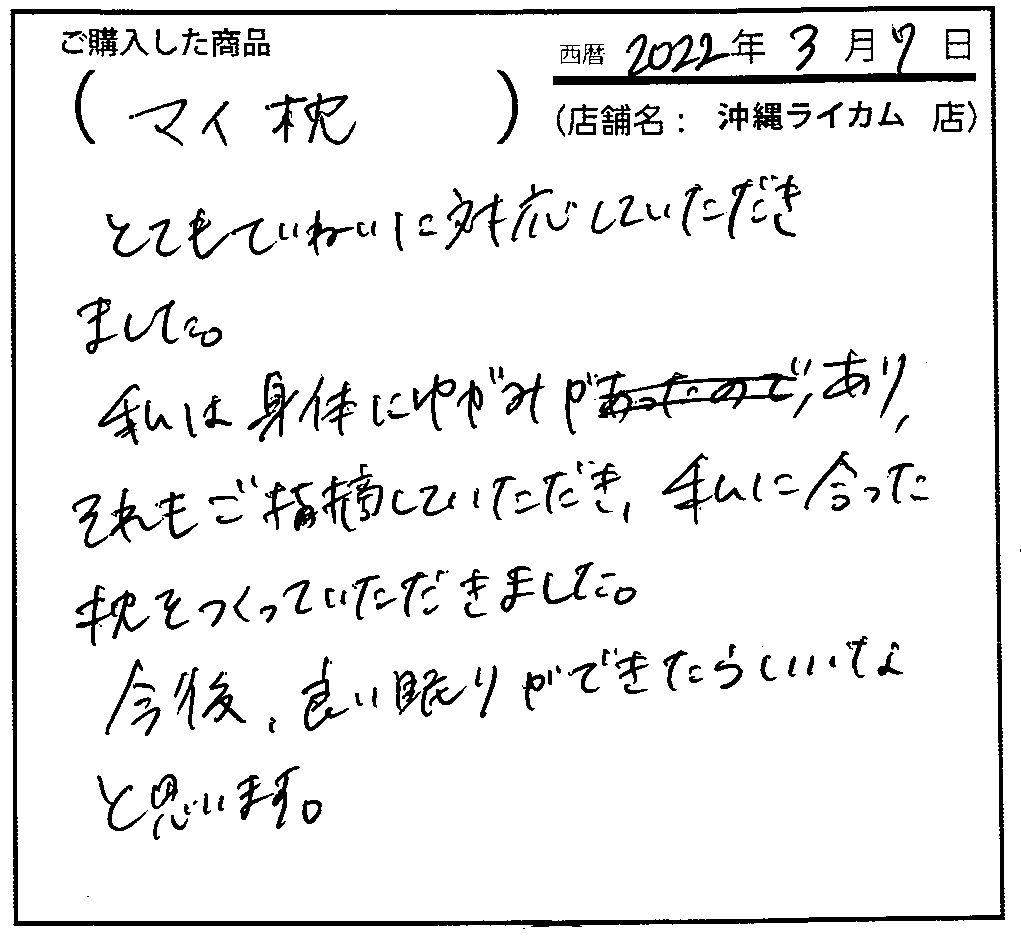 ご購入した商品
西暦 2022年 3月7日
(マイ枕)
(店舗名: 沖縄ライカム 店)
とてもていねいに対応していただき
ました。
私は身体にゆがみがあったので、あり、
それもご指摘していただき、私に合った
枕をつくっていただきました。
今後、良い眠りができたらいいな
と思います。